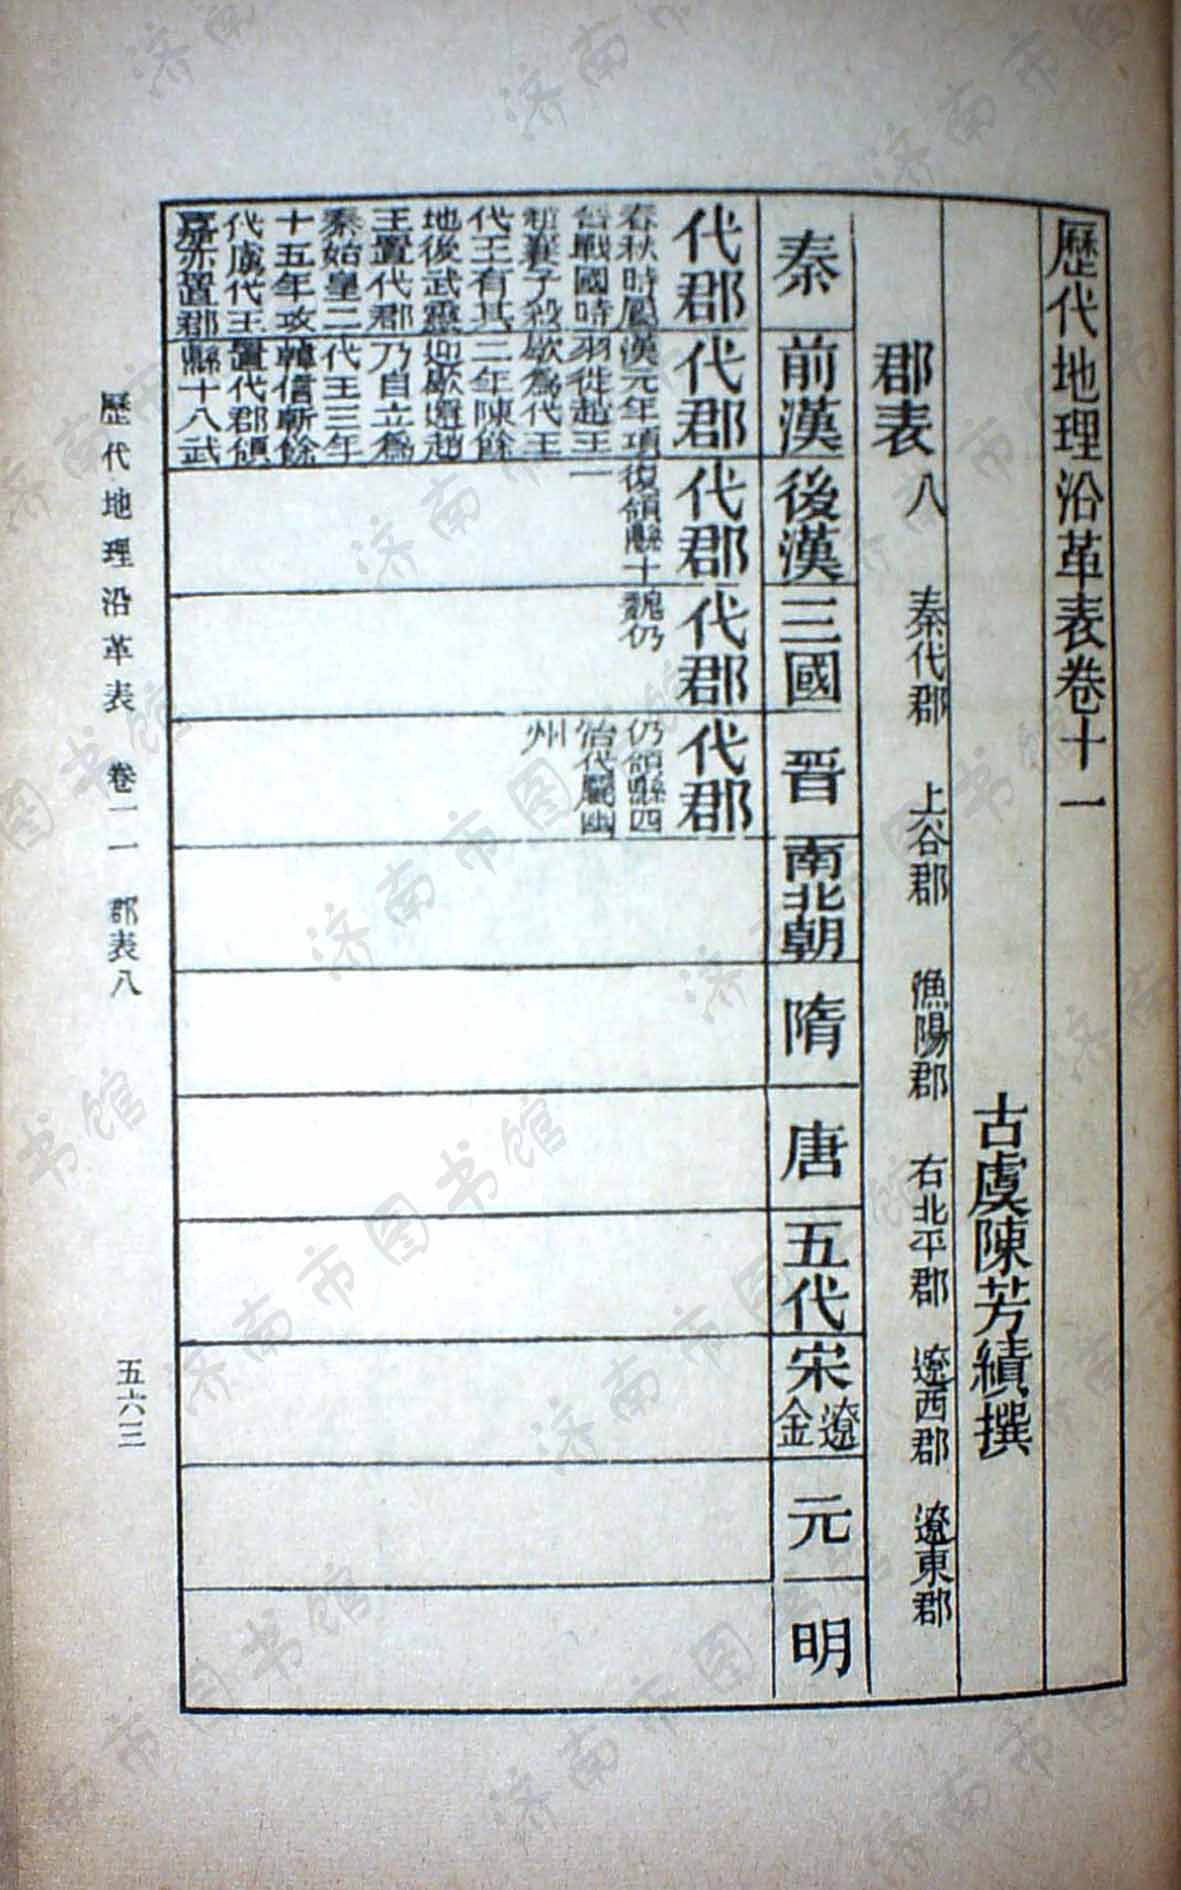 歷代地理沿革表卷十一
古虞陳芳績撰
郡表八 秦代郡 上谷郡 漁陽郡 右北平郡 遼西郡 遼東郡
秦
前漢
後漢
三國
晉
南北朝
隋
唐
五代
宋遼金
元
明
代郡
春秋時屬
晉戰國時
趙襄子殺
代王有其
地後武靈
王置代郡
秦始皇二
十五年攻
代虜代王
嘉亦置郡
代郡
漢元年項
羽徙趙王
歇為代王
二年陳餘
迎歇還趙
乃自立為
代王三年
韓信斬餘
置代郡領
縣十八武
代郡
復領縣十
一
代郡
魏仍
代郡
仍領縣四
治代屬幽
州
歷代地理沿革表 卷一一 郡表八
五六三
济南市图书馆